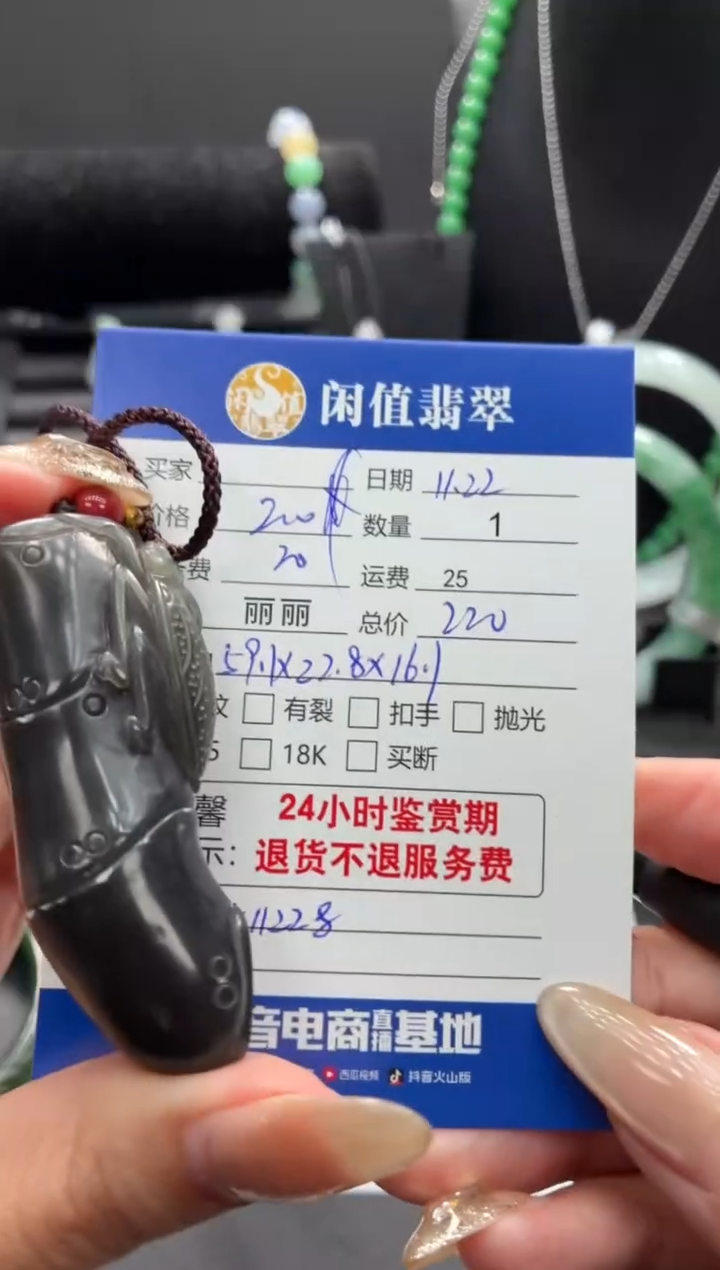 闲值翡翠
买家 日期 11.22
价格 200 数量 1
费 20 运费 25
丽丽 总价 220
59.1x22.8x16.1
纹 有裂 扣手 抛光
18K 买断
馨 24小时鉴赏期
示: 退货不退服务费
1122
音电商直播基地
西瓜视频 抖音火山版